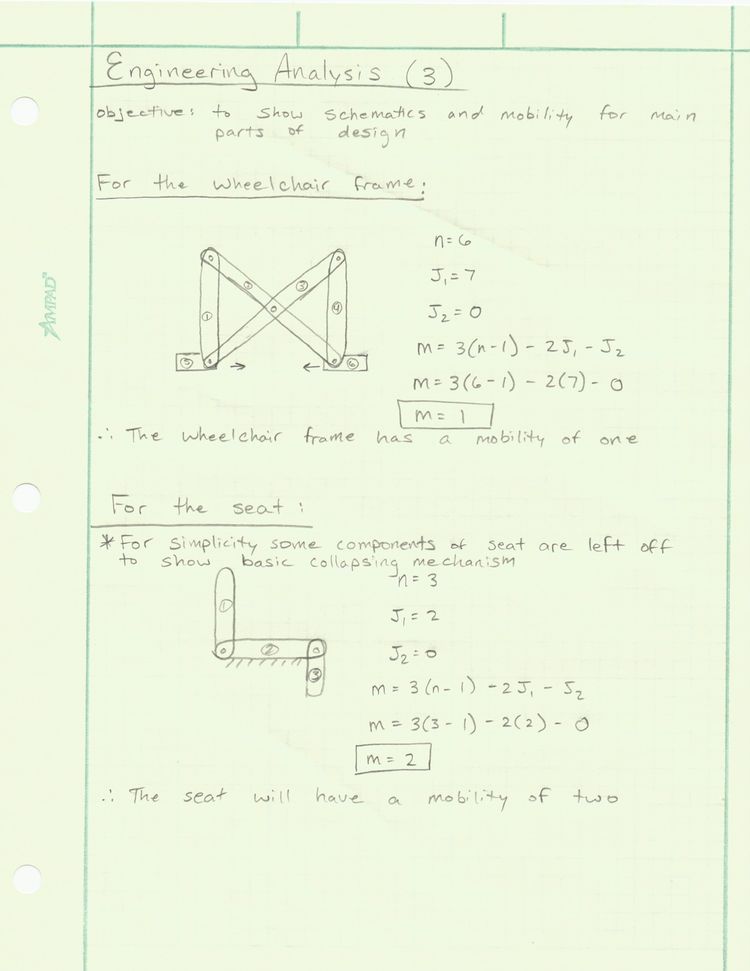 Engineering Analysis (3)
objective: to show schematics and mobility for main
parts of design
For the wheelchair frame:
n=6
J₁=7
J₂=0
m= 3(n-1) - 2J₁ - J₂
m= 3(6-1) - 2(7) - 0
m= 1
① ② ③ ④
⑤ ⑥
∴ The wheelchair frame has a mobility of one
AMPAD
For the seat:
* For simplicity some components of seat are left off
to show basic collapsing mechanism
n= 3
J₁= 2
J₂=0
m= 3(n-1) - 2J₁ - J₂
m= 3(3-1) - 2(2) - 0
m= 2
①
②
③
∴ The seat will have a mobility of two